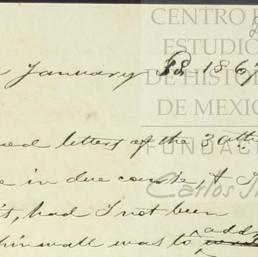 CENTRO
ESTUDIO
DE HISTOR
DE MEXIC
FUNDAC
Carlos
January 18 1867
letters of the 30th
in due course, & I
had I not been
was to add